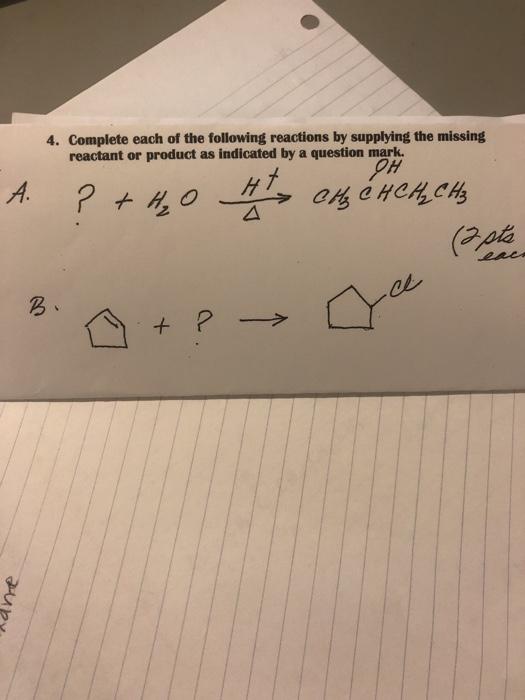 4. Complete each of the following reactions by supplying the missing
reactant or product as indicated by a question mark.
OH
A. ? + H₂O H⁺ Δ → CH₃CHCH₂CH₃
(2 pts
each
B. + ? → Cl